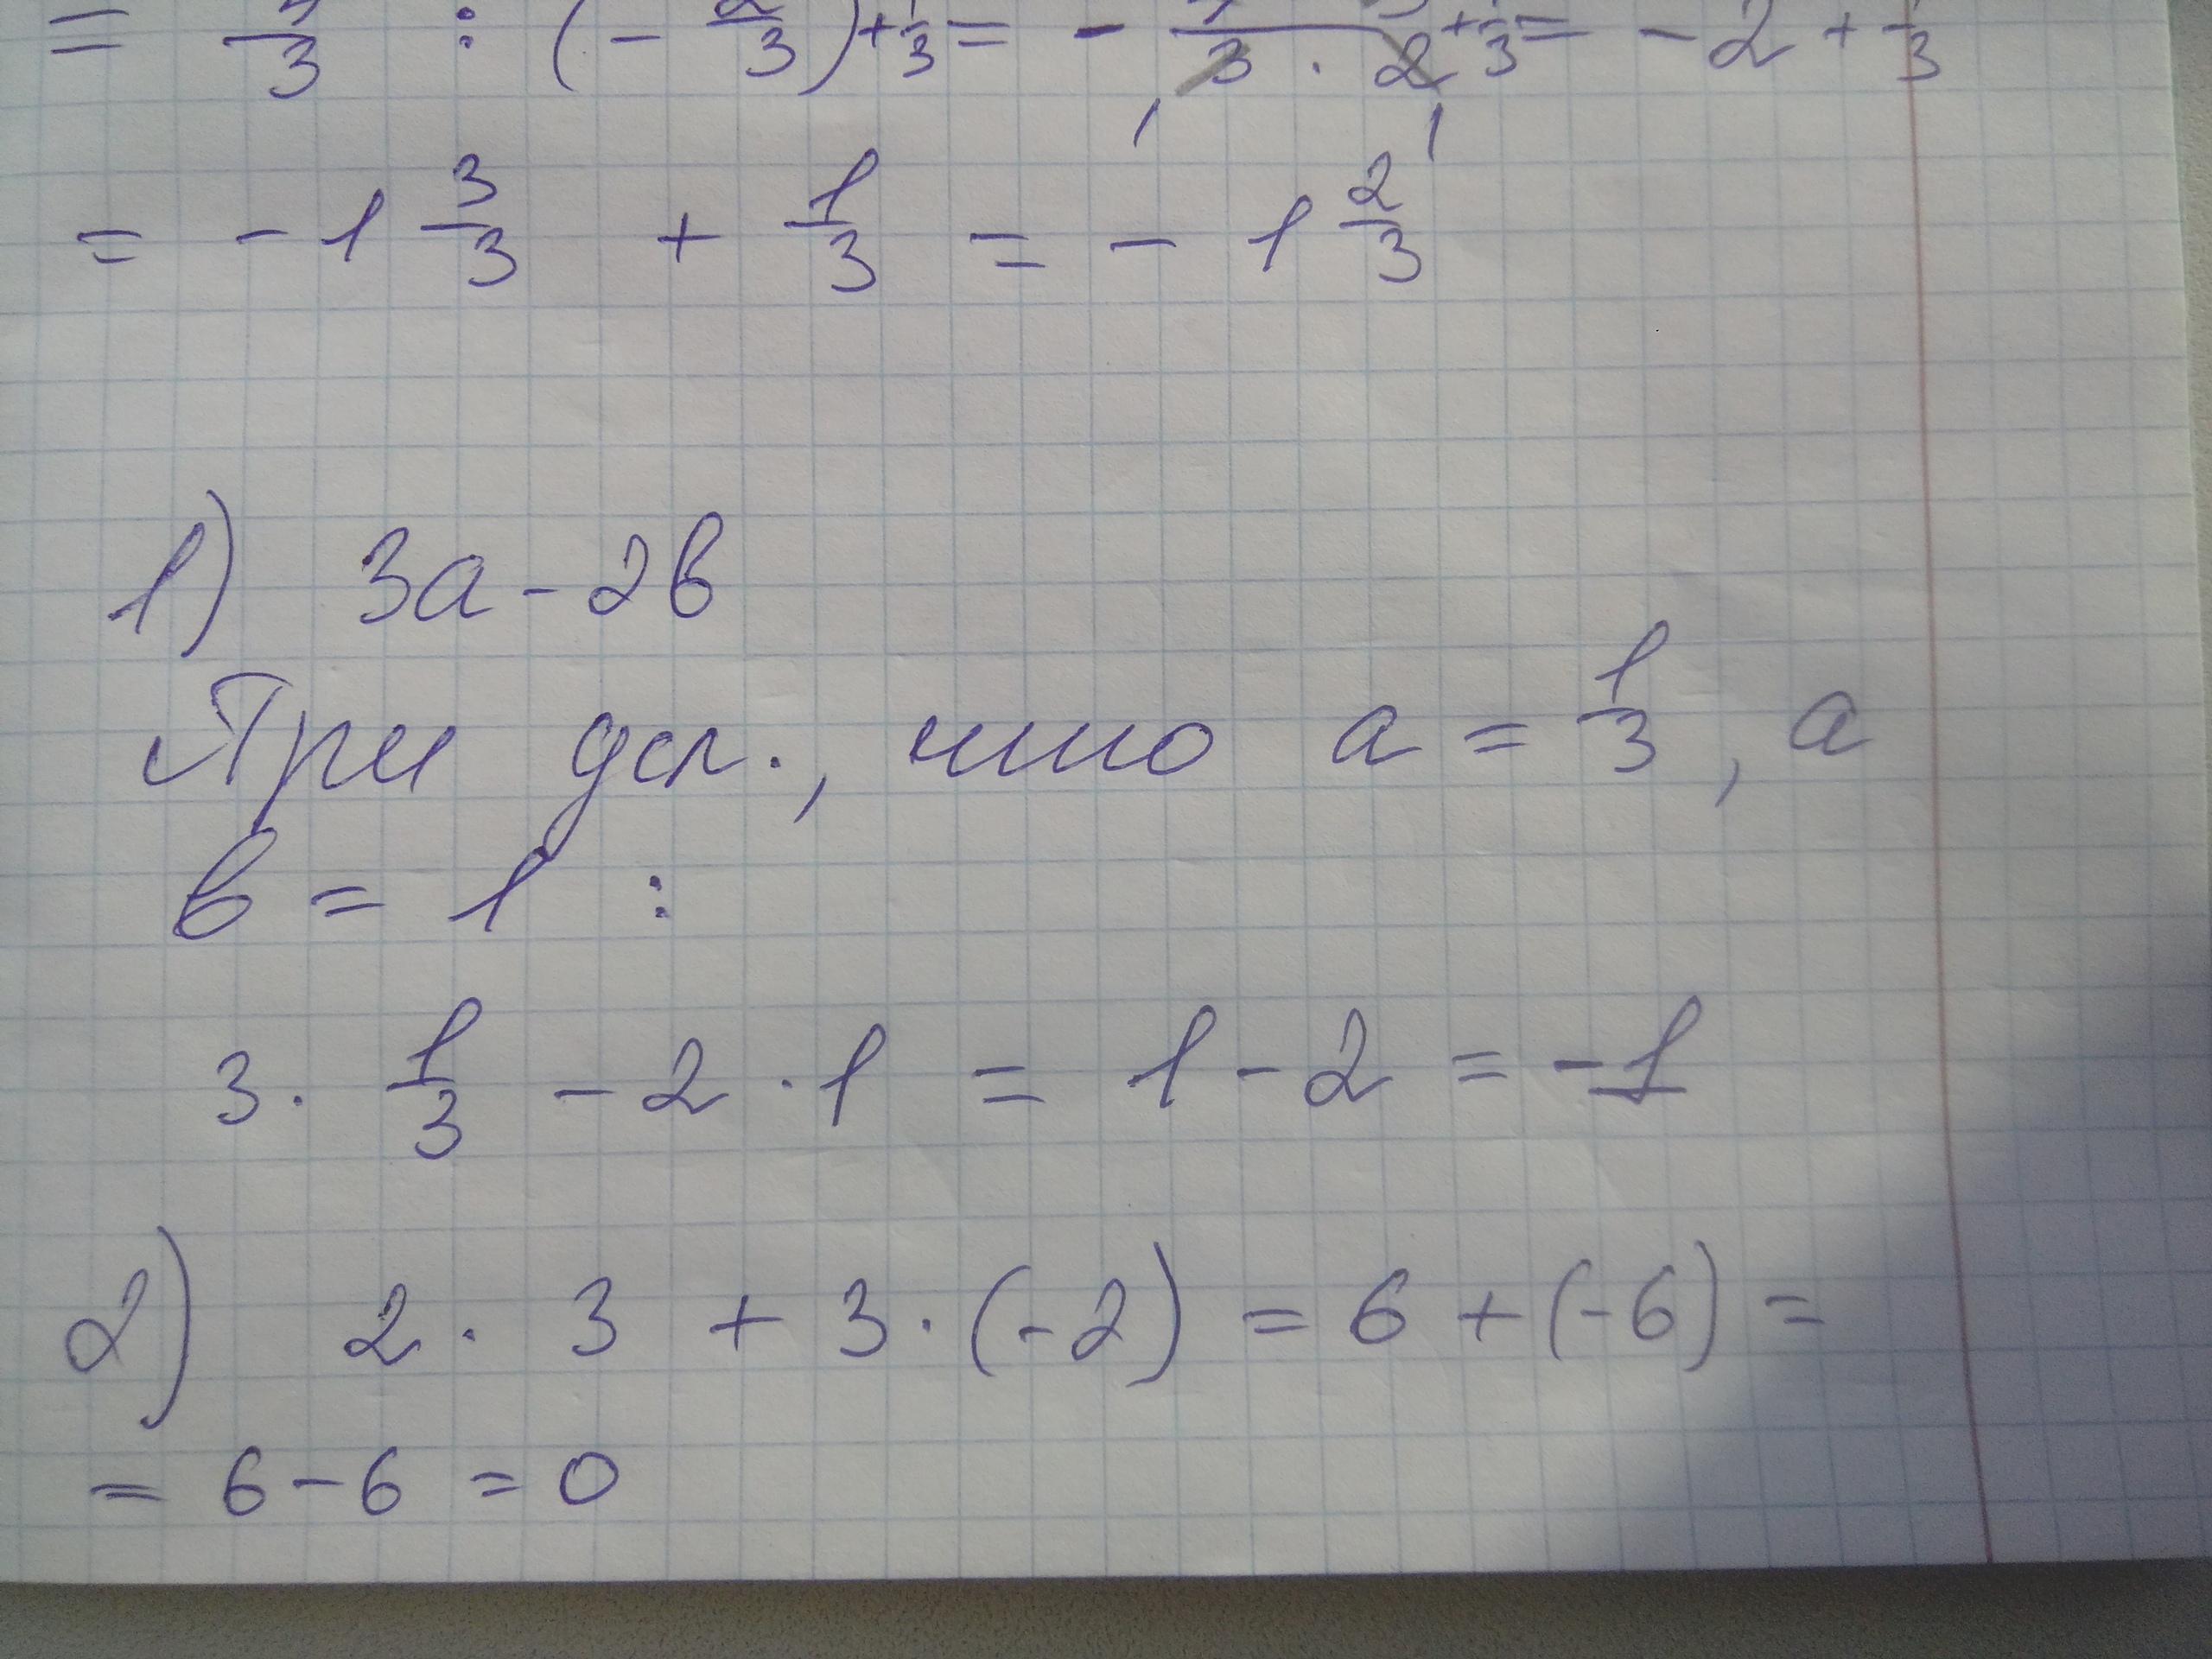 = 4/3 : (- 2/3) + 1/3 = - 4 3/3 · 2 + 1/3 = - 2 + 1/3
= - 1 3/3 + 1/3 = - 1 2/3
1) 3а - 2в
При усл., что а = 1/3, а
в = 1 :
3 · 1/3 - 2 · 1 = 1 - 2 = -1
2) 2 · 3 + 3 · (-2) = 6 + (-6) =
= 6 - 6 = 0